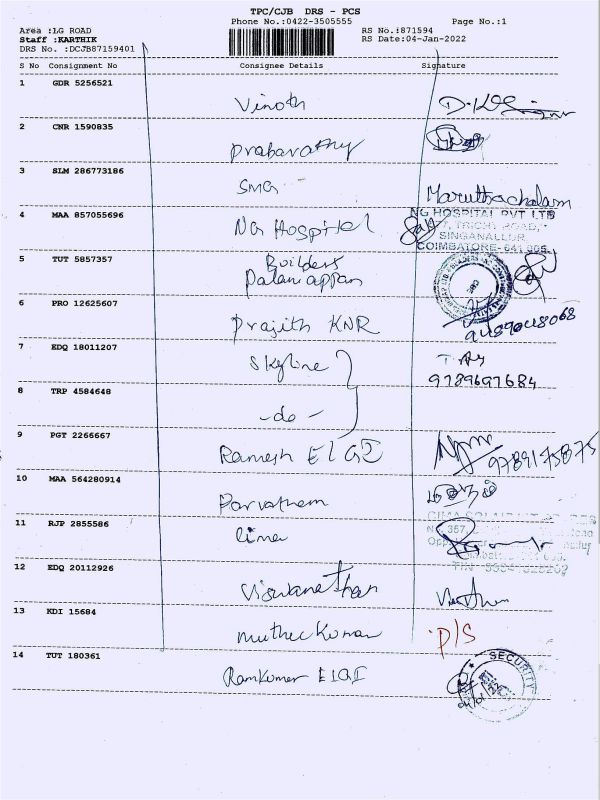 TPC/CJB DRS - PCS
Phone No.:0422-3505555 Page No.:1
Area :LG ROAD RS No.:871594
Staff :KARTHIK RS Date:04-Jan-2022
DRS No. :DCJB87159401
S No Consignment No Consignee Details Signature
1 GDR 5256521
Vinoth
2 CNR 1590835
Prabavathy
3 SLM 286773186
SMG Maruthachalam
4 MAA 857055696 NG HOSPITAL PVT LTD
NG Hospitel TRICHY ROAD,
SINGANALLUR
COIMBATORE- 641 005
5 TUT 5857357 Builders
Palaniappan
6 PRO 12625607
Prajith KNR
7 EDQ 18011207
Skyline
9789697684
8 TRP 4584648
- do -
9 PGT 2266667
Ramesh ELGI 9789175875
10 MAA 564280914
Parvathem
11 RJP 2855586
12 EDQ 20112926
Viswanathan
13 KDI 15684
Muthu Kumar P/S
14 TUT 180361 SECURITY
Ramkumar ELGI